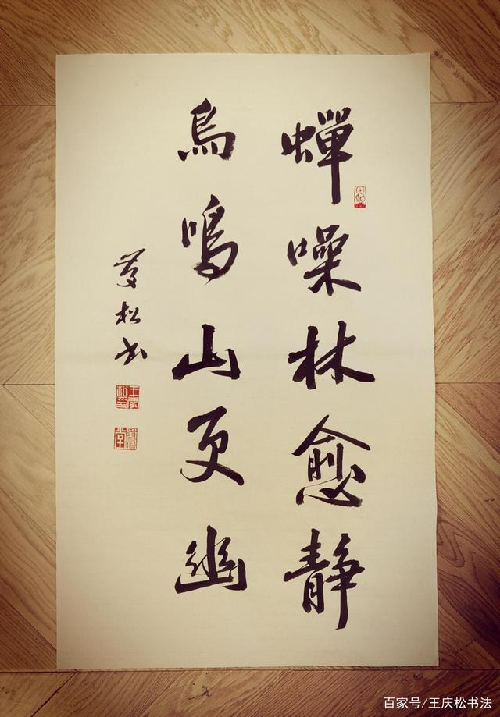 蟬噪林愈静
鳥鳴山更幽
慶松书
百家号/王庆松书法